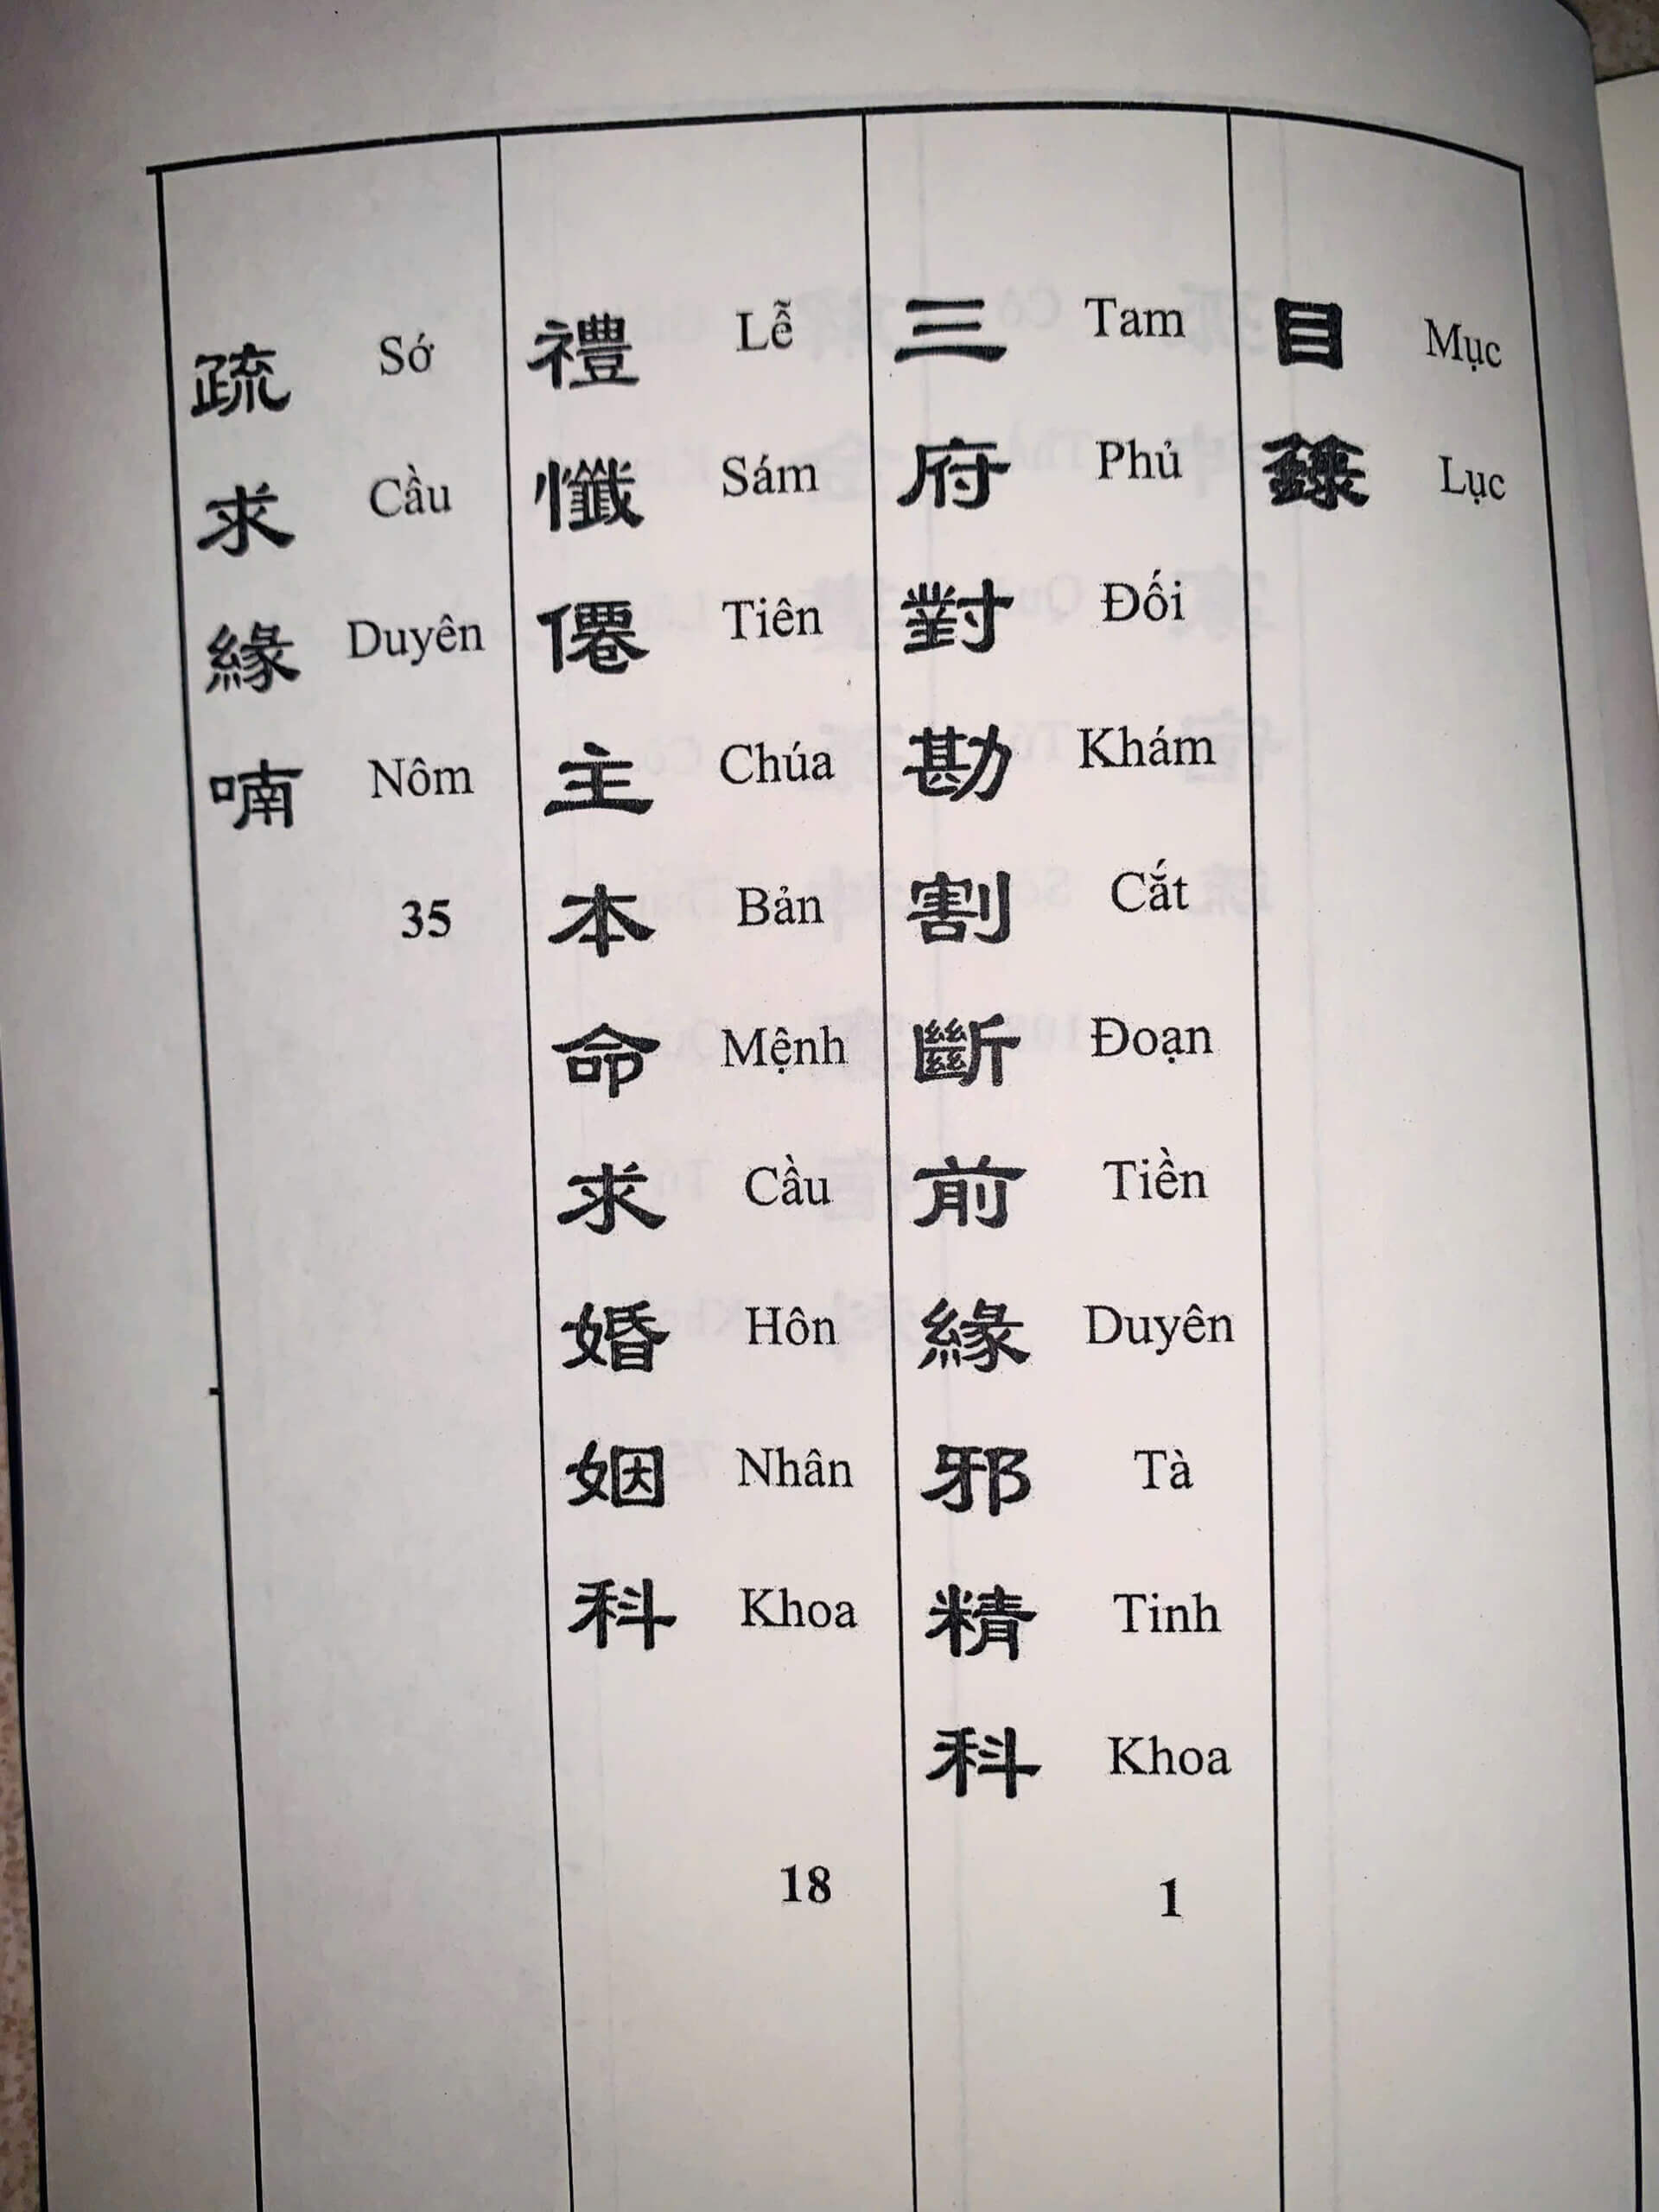 目錄
Mục Lục
三府對勘割斷前緣邪精科
Tam Phủ Đối Khám Cắt Đoạn Tiền Duyên Tà Tinh Khoa
1
禮懺僊主本命求婚姻科
Lễ Sám Tiên Chúa Bản Mệnh Cầu Hôn Nhân Khoa
18
疏求緣喃
Sớ Cầu Duyên Nôm
35